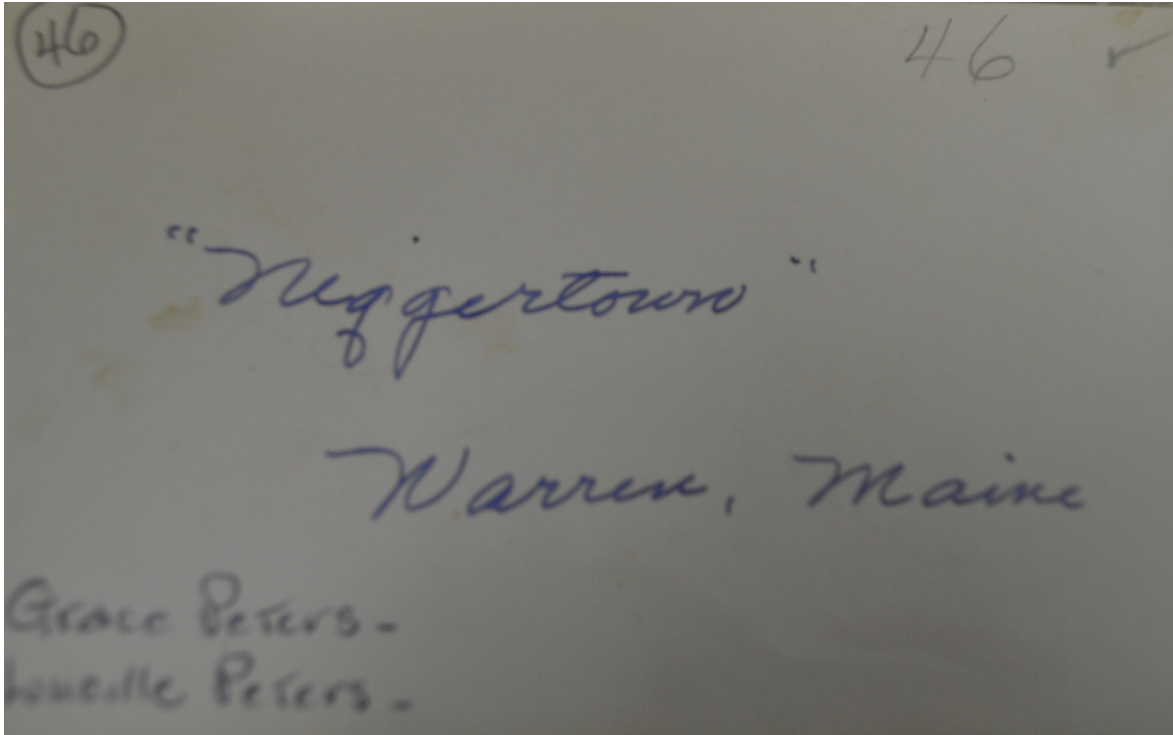 46 46 ✓
"Niggertown"
Warren, Maine
Grace Peters-
Peters-